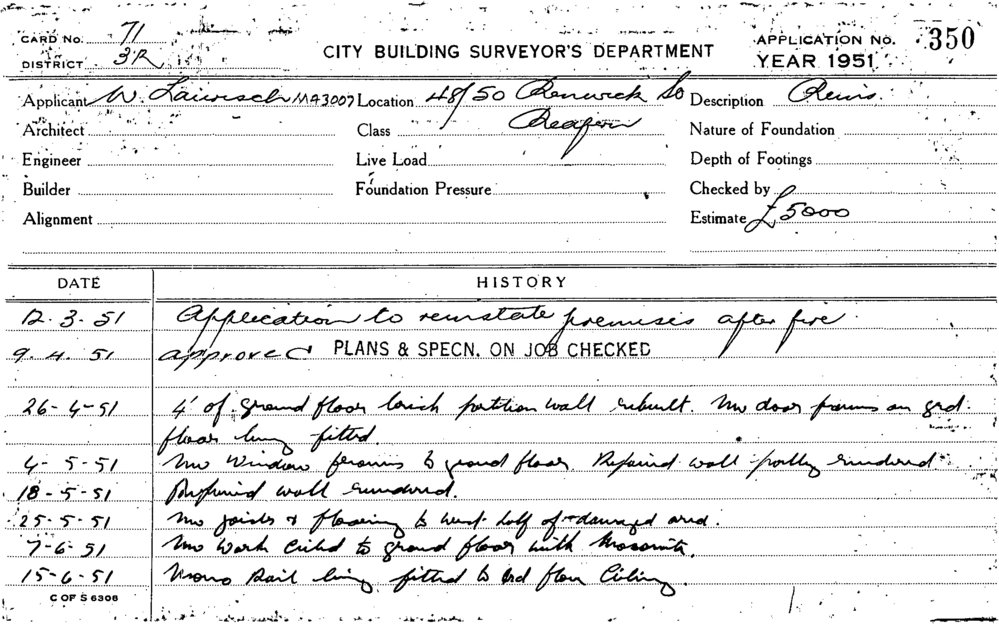 CARD No. 71
DISTRICT 3R
CITY BUILDING SURVEYOR'S DEPARTMENT
APPLICATION No. 350
YEAR 1951
Applicant W. MA3007 Location 48/50 Renwick St Description Reins.
Redfern
Architect Class Nature of Foundation
Engineer Live Load Depth of Footings
Builder Foundation Pressure Checked by
Alignment Estimate £5000
DATE HISTORY
12.3.51 Application to reinstate premises after fire.
9.4.51 approved PLANS & SPECN. ON JOB CHECKED
26-4-51 4' of ground floor brick partition wall rebuilt. door frames on grd.
floor being fitted.
4-5-51 window frames to ground floor. Repaired wall partly rendered
18-5-51 Repaired wall rendered.
25-5-51 joists & flooring to half of damaged area.
7-6-51 work to ground floor with
15-6-51 Mono Rail being fitted to floor
C OF S 6306